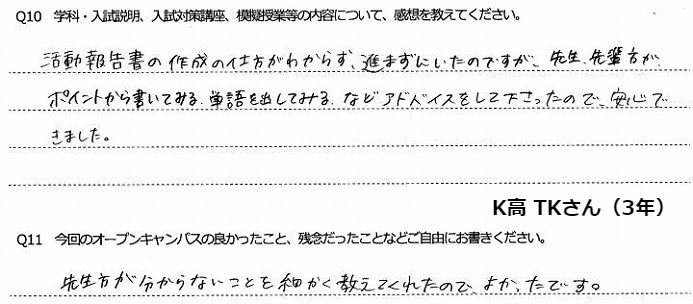 Q10 学科・入試説明、入試対策講座、模擬授業等の内容について、感想を教えてください。
活動報告書の作成の仕方がわからず、進まずにいたのですが、先生、先輩方が、
ポイントから書いてみる、単語を出してみる、などアドバイスをして下さったので、安心で
きました。
K高 TKさん（3年）
Q11 今回のオープンキャンパスの良かったこと、残念だったことなどご自由にお書きください。
先生方が分からないことを細かく教えてくれたので、よかったです。